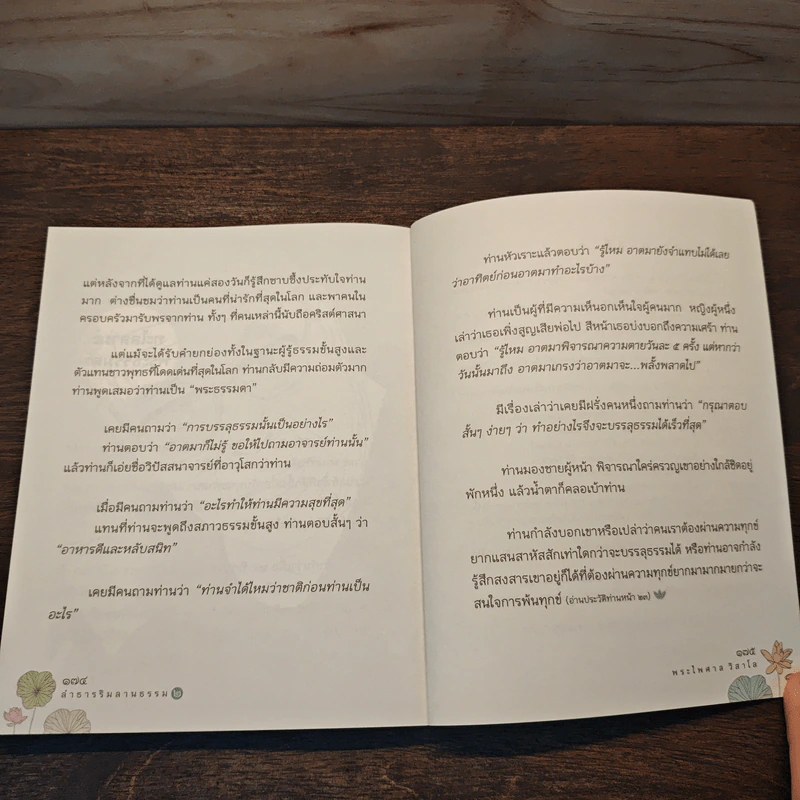 แต่หลังจากที่ได้ดูแลท่านแค่สองวันก็รู้สึกซาบซึ้งประทับใจท่าน
มาก ต่างชื่นชมว่าท่านเป็นคนที่น่ารักที่สุดในโลก และพาคนใน
ครอบครัวมารับพรจากท่าน ทั้งๆ ที่คนเหล่านี้นับถือคริสต์ศาสนา
แต่แม้จะได้รับคำยกย่องทั้งในฐานะผู้รู้ธรรมขั้นสูงและ
ตัวแทนชาวพุทธที่โดดเด่นที่สุดในโลก ท่านกลับมีความถ่อมตัวมาก
ท่านพูดเสมอว่าท่านเป็น “พระธรรมดา”
เคยมีคนถามว่า “การบรรลุธรรมนั้นเป็นอย่างไร”
ท่านตอบว่า “อาตมาก็ไม่รู้ ขอให้ไปถามอาจารย์ท่านนั้น”
แล้วท่านก็เอ่ยชื่อวิปัสสนาจารย์ที่อาวุโสกว่าท่าน
เมื่อมีคนถามท่านว่า “อะไรทำให้ท่านมีความสุขที่สุด”
แทนที่ท่านจะพูดถึงสภาวธรรมขั้นสูง ท่านตอบสั้นๆ ว่า
“อาหารดีและหลับสนิท”
เคยมีคนถามท่านว่า “ท่านจำได้ไหมว่าชาติก่อนท่านเป็น
อะไร”
๑๗๔
ลำธารริมลานธรรม ๒
ท่านหัวเราะแล้วตอบว่า “รู้ไหม อาตมายังจำแทบไม่ได้เลย
ว่าอาทิตย์ก่อนอาตมาทำอะไรบ้าง”
ท่านเป็นผู้ที่มีความเห็นอกเห็นใจผู้คนมาก หญิงผู้หนึ่ง
เล่าว่าเธอเพิ่งสูญเสียพ่อไป สีหน้าเธอบ่งบอกถึงความเศร้า ท่าน
ตอบว่า “รู้ไหม อาตมาพิจารณาความตายวันละ ๕ ครั้ง แต่หากว่า
วันนั้นมาถึง อาตมาเกรงว่าอาตมาจะ...พลั้งพลาดไป”
มีเรื่องเล่าว่าเคยมีฝรั่งคนหนึ่งถามท่านว่า “กรุณาตอบ
สั้นๆ ง่ายๆ ว่า ทำอย่างไรจึงจะบรรลุธรรมได้เร็วที่สุด”
ท่านมองชายผู้หน้า พิจารณาใคร่ครวญเขาอย่างใกล้ชิดอยู่
พักหนึ่ง แล้วน้ำตาก็คลอเบ้าท่าน
ท่านกำลังบอกเขาหรือเปล่าว่าคนเราต้องผ่านความทุกข์
ยากแสนสาหัสสักเท่าใดกว่าจะบรรลุธรรมได้ หรือท่านอาจกำลัง
รู้สึกสงสารเขาอยู่ก็ได้ที่ต้องผ่านความทุกข์ยากมามากมายกว่าจะ
สนใจการพ้นทุกข์ (อ่านประวัติท่านหน้า ๒๓)
๑๗๕
พระไพศาล วิสาโล